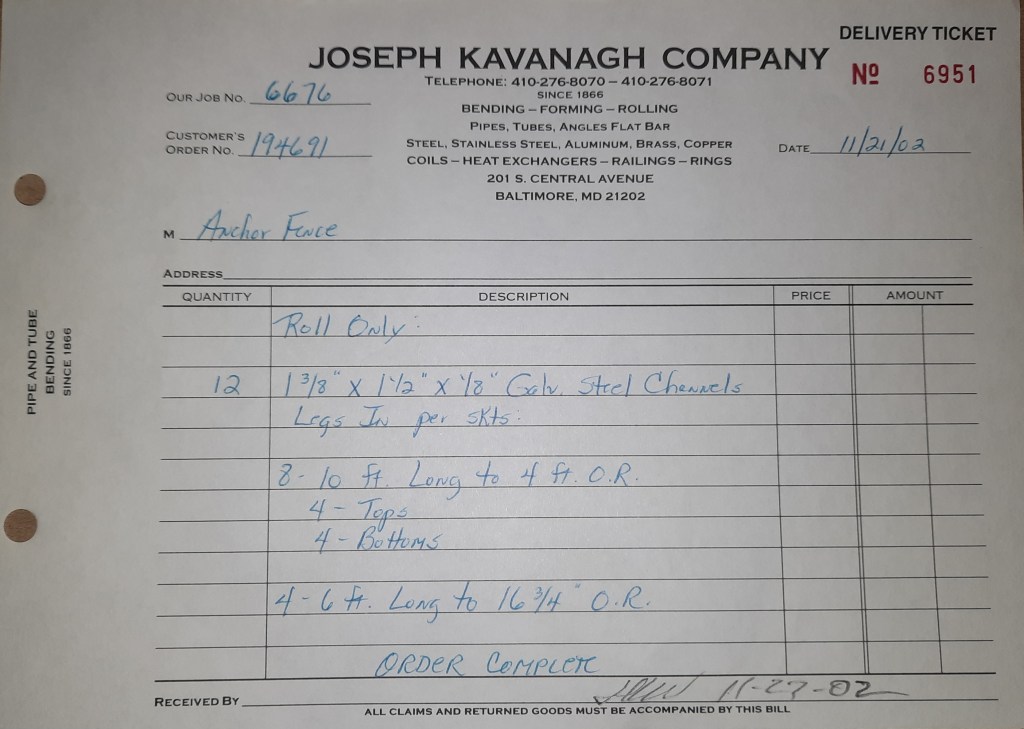 DELIVERY TICKET
JOSEPH KAVANAGH COMPANY
Nº 6951
TELEPHONE: 410-276-8070 – 410-276-8071
SINCE 1866
OUR JOB NO. 6676
BENDING – FORMING – ROLLING
PIPES, TUBES, ANGLES FLAT BAR
CUSTOMER'S
ORDER NO. 194691
STEEL, STAINLESS STEEL, ALUMINUM, BRASS, COPPER
DATE 11/21/02
COILS – HEAT EXCHANGERS – RAILINGS – RINGS
201 S. CENTRAL AVENUE
BALTIMORE, MD 21202
M Anchor Fence
ADDRESS
QUANTITY DESCRIPTION PRICE AMOUNT
Roll Only:
12 1 3/8" X 1 1/2" X 1/8" Galv. Steel Channels
Legs In per skts:
8 - 10 ft. Long to 4 ft. O.R.
4 - Tops
4 - Bottoms
4 - 6 ft. Long to 16 3/4" O.R.
ORDER COMPLETE
RECEIVED BY 11-27-02
ALL CLAIMS AND RETURNED GOODS MUST BE ACCOMPANIED BY THIS BILL
PIPE AND TUBE
BENDING
SINCE 1866